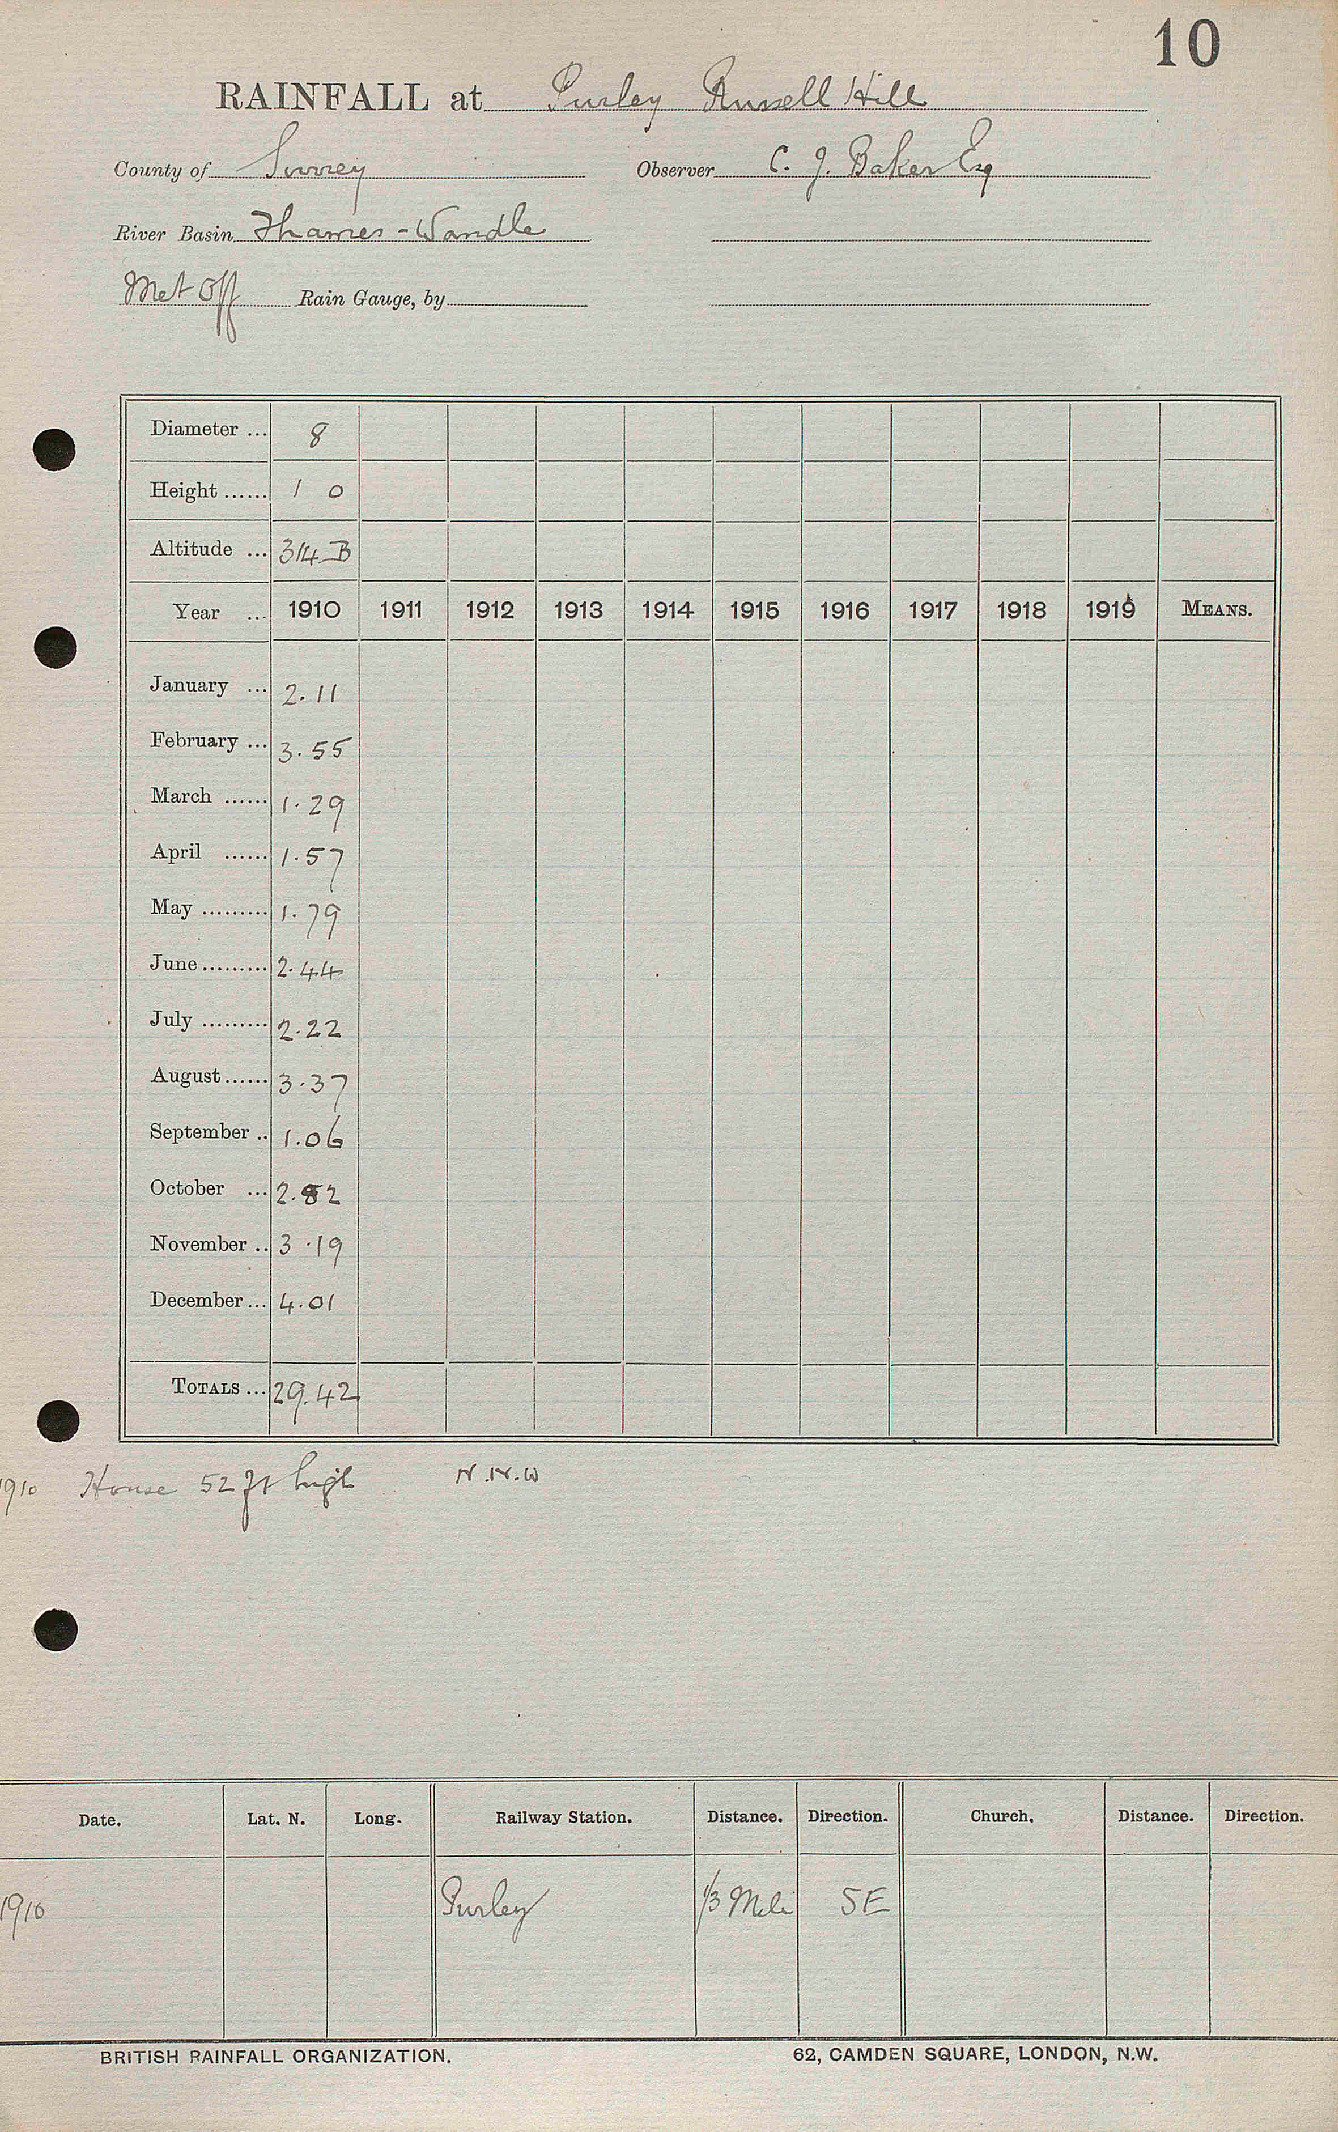 10
RAINFALL at Purley Russell Hill
County of Surrey Observer C. J. Baker Esq
River Basin Thames - Wandle
Met Off Rain Gauge, by
Diameter ... 8
Height ...... 1 0
Altitude ... 314 B
Year ... 1910 1911 1912 1913 1914 1915 1916 1917 1918 1919 MEANS.
January ... 2.11
February ... 3.55
March ...... 1.29
April ...... 1.57
May ......... 1.79
June ......... 2.44
July ......... 2.22
August ...... 3.37
September .. 1.06
October ... 2.82
November .. 3.19
December ... 4.01
TOTALS ... 29.42
1910 House 52 ft high N.N.W
Date. Lat. N. Long. Railway Station. Distance. Direction. Church. Distance. Direction.
1910 Purley 1/3 Mile SE
BRITISH RAINFALL ORGANIZATION. 62, CAMDEN SQUARE, LONDON, N.W.